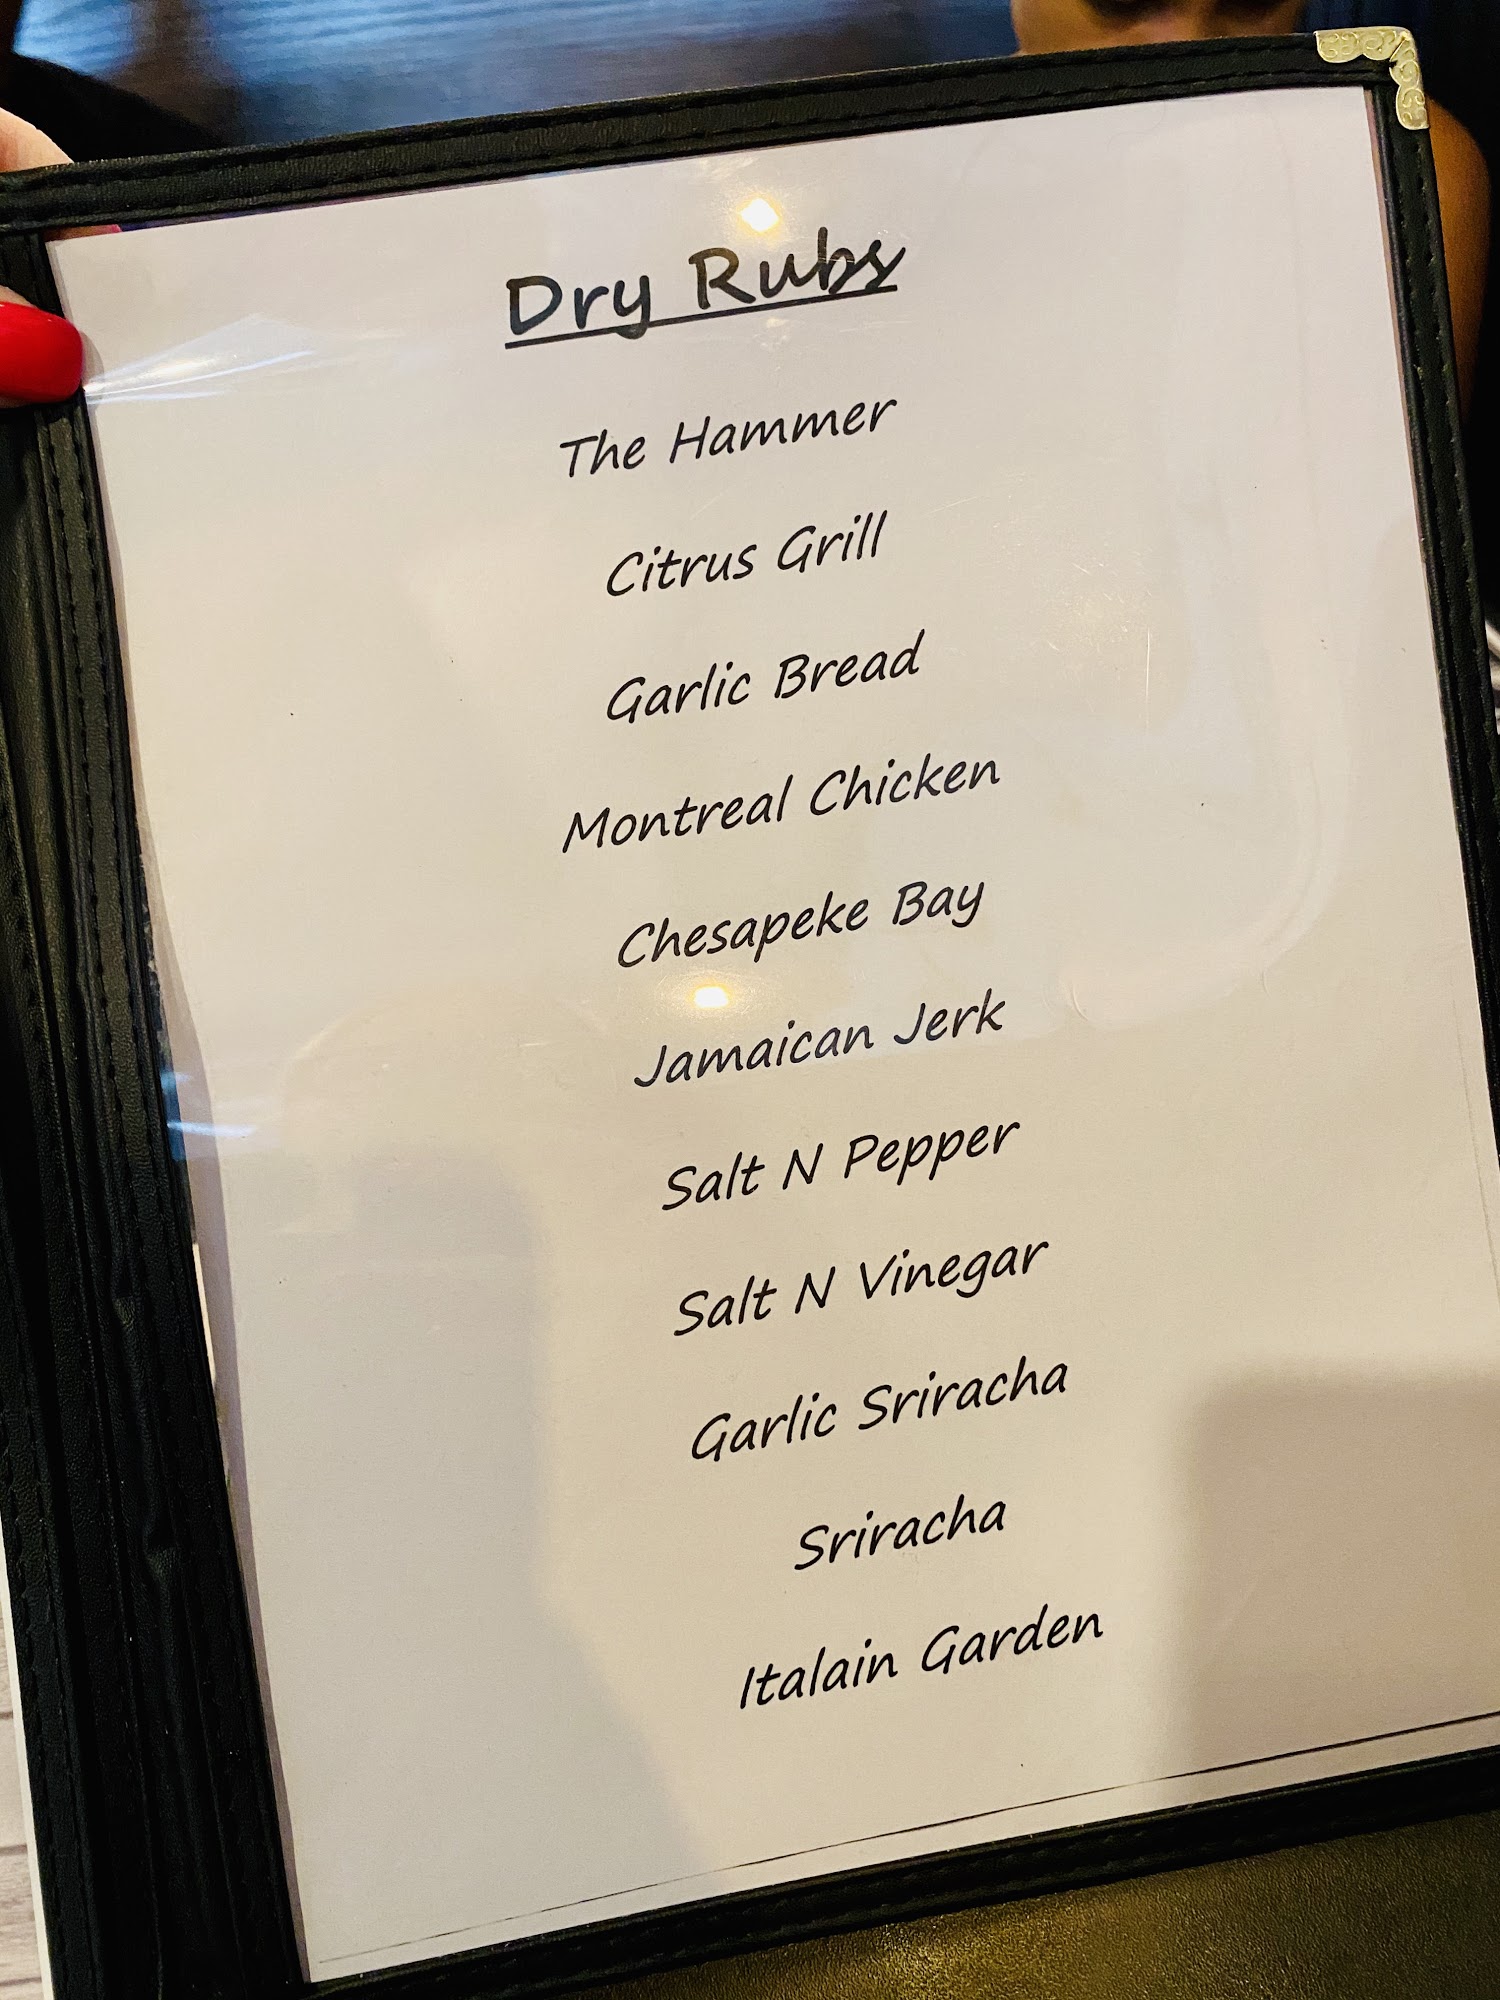 Dry Rubs
The Hammer
Citrus Grill
Garlic Bread
Montreal Chicken
Chesapeke Bay
Jamaican Jerk
Salt N Pepper
Salt N Vinegar
Garlic Sriracha
Sriracha
Italain Garden